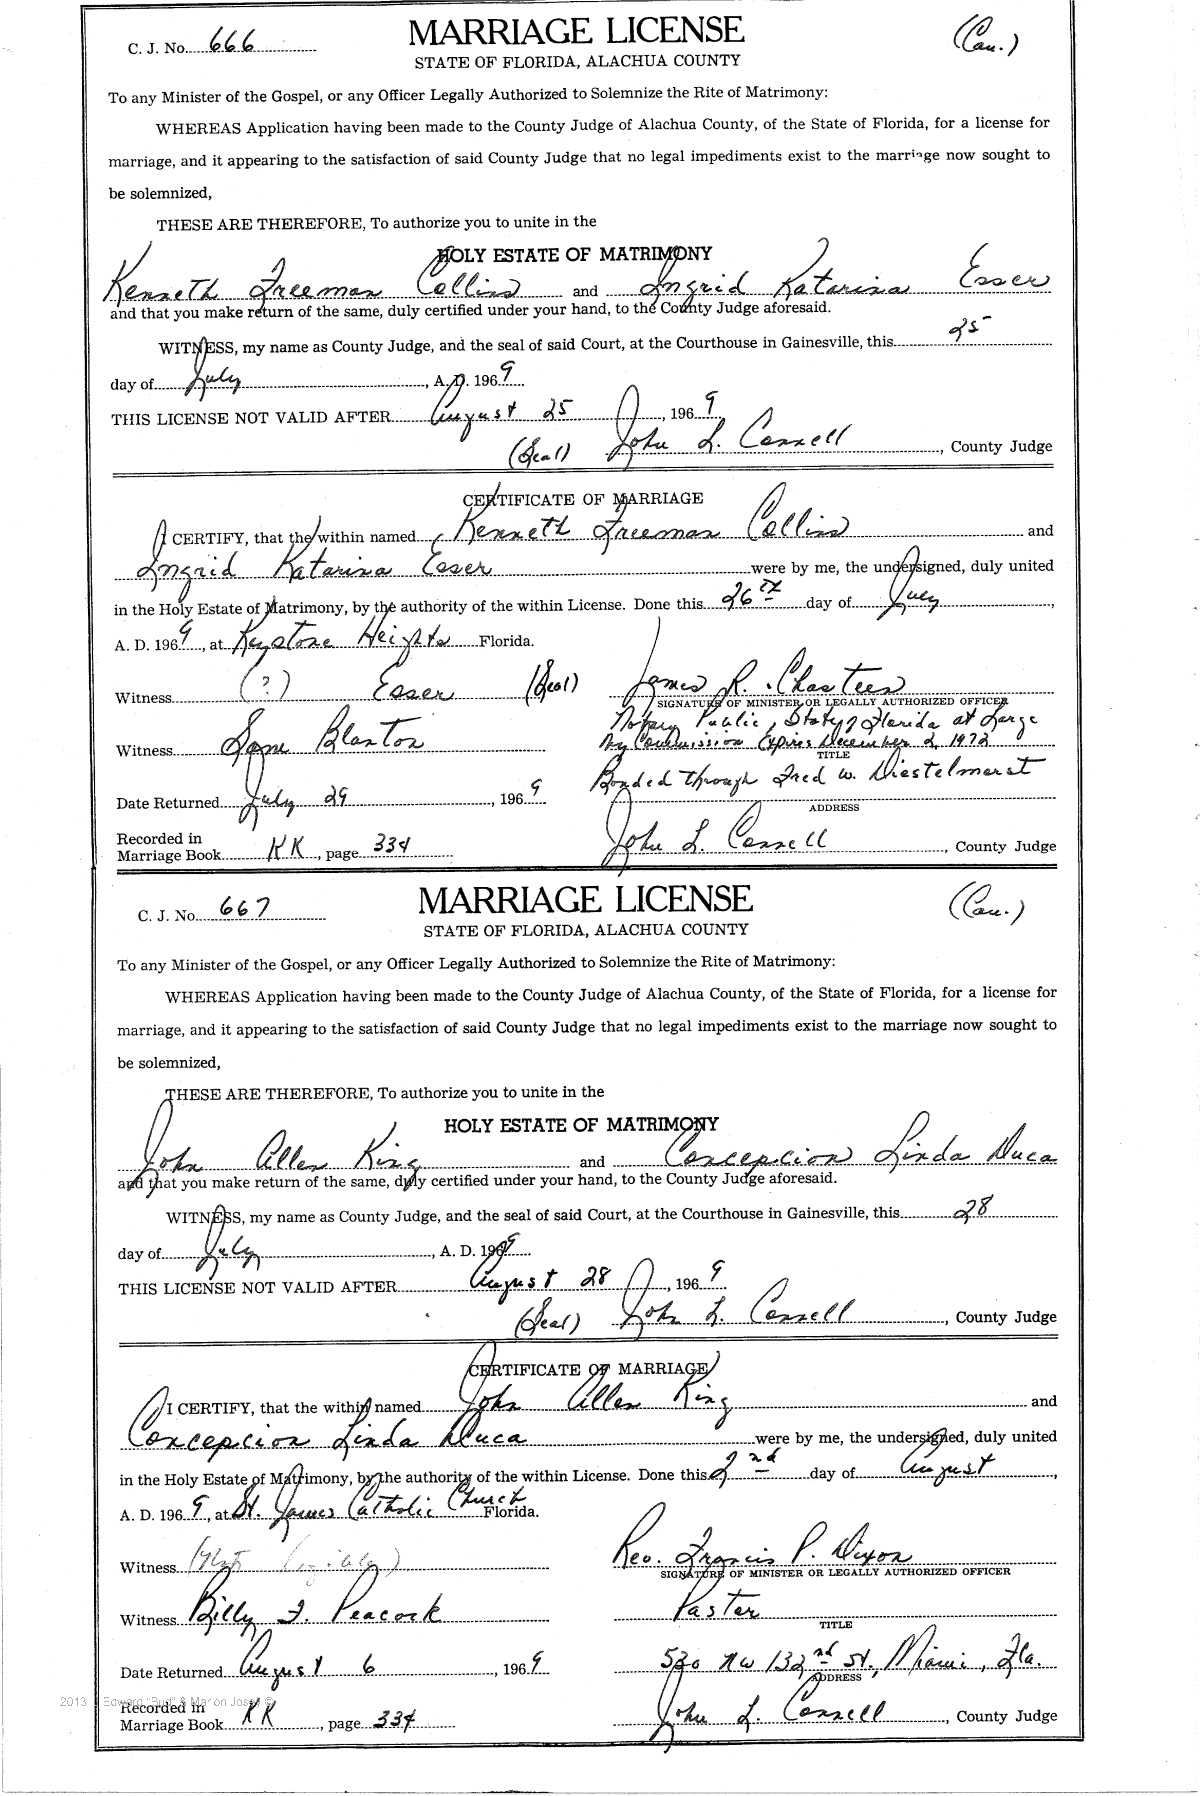 C. J. No. 666
MARRIAGE LICENSE
(Cau.)
STATE OF FLORIDA, ALACHUA COUNTY
To any Minister of the Gospel, or any Officer Legally Authorized to Solemnize the Rite of Matrimony:
WHEREAS Application having been made to the County Judge of Alachua County, of the State of Florida, for a license for
marriage, and it appearing to the satisfaction of said County Judge that no legal impediments exist to the marriage now sought to
be solemnized,
THESE ARE THEREFORE, To authorize you to unite in the
HOLY ESTATE OF MATRIMONY
Kenneth Freeman Collins and Ingrid Katarina Esser
and that you make return of the same, duly certified under your hand, to the County Judge aforesaid.
WITNESS, my name as County Judge, and the seal of said Court, at the Courthouse in Gainesville, this 25
day of July, A. D. 1969
THIS LICENSE NOT VALID AFTER August 25, 1969
(Seal) John L. Connell, County Judge
CERTIFICATE OF MARRIAGE
I CERTIFY, that the within named Kenneth Freeman Collins and
Ingrid Katarina Esser were by me, the undersigned, duly united
in the Holy Estate of Matrimony, by the authority of the within License. Done this 26th day of July,
A. D. 1969, at Keystone Heights Florida.
Witness (?) Esser (Seal) James R. Chasteen
SIGNATURE OF MINISTER OR LEGALLY AUTHORIZED OFFICER
Notary Public, State of Florida at Large
Witness Blanton My Commission Expires December 2, 1972
TITLE
Bonded through Fred W. Diestelmerst
Date Returned July 29, 1969
ADDRESS
Recorded in
Marriage Book KK, page 334 John L. Connell, County Judge
C. J. No. 667
MARRIAGE LICENSE
(Cau.)
STATE OF FLORIDA, ALACHUA COUNTY
To any Minister of the Gospel, or any Officer Legally Authorized to Solemnize the Rite of Matrimony:
WHEREAS Application having been made to the County Judge of Alachua County, of the State of Florida, for a license for
marriage, and it appearing to the satisfaction of said County Judge that no legal impediments exist to the marriage now sought to
be solemnized,
THESE ARE THEREFORE, To authorize you to unite in the
HOLY ESTATE OF MATRIMONY
John Allen King and Concepcion Linda Duca
and that you make return of the same, duly certified under your hand, to the County Judge aforesaid.
WITNESS, my name as County Judge, and the seal of said Court, at the Courthouse in Gainesville, this 28
day of July, A. D. 1969
THIS LICENSE NOT VALID AFTER August 28, 1969
(Seal) John L. Connell, County Judge
CERTIFICATE OF MARRIAGE
I CERTIFY, that the within named John Allen King and
Concepcion Linda Duca were by me, the undersigned, duly united
in the Holy Estate of Matrimony, by the authority of the within License. Done this 2nd day of August,
A. D. 1969, at St. James Catholic Church Florida.
Witness Rev. Francis P. Dixon
SIGNATURE OF MINISTER OR LEGALLY AUTHORIZED OFFICER
Witness Billy J. Peacock Paster
TITLE
Date Returned August 6, 1969 530 NW 132nd St., Miami, Fla.
ADDRESS
Recorded in
Marriage Book KK, page 334 John L. Connell, County Judge